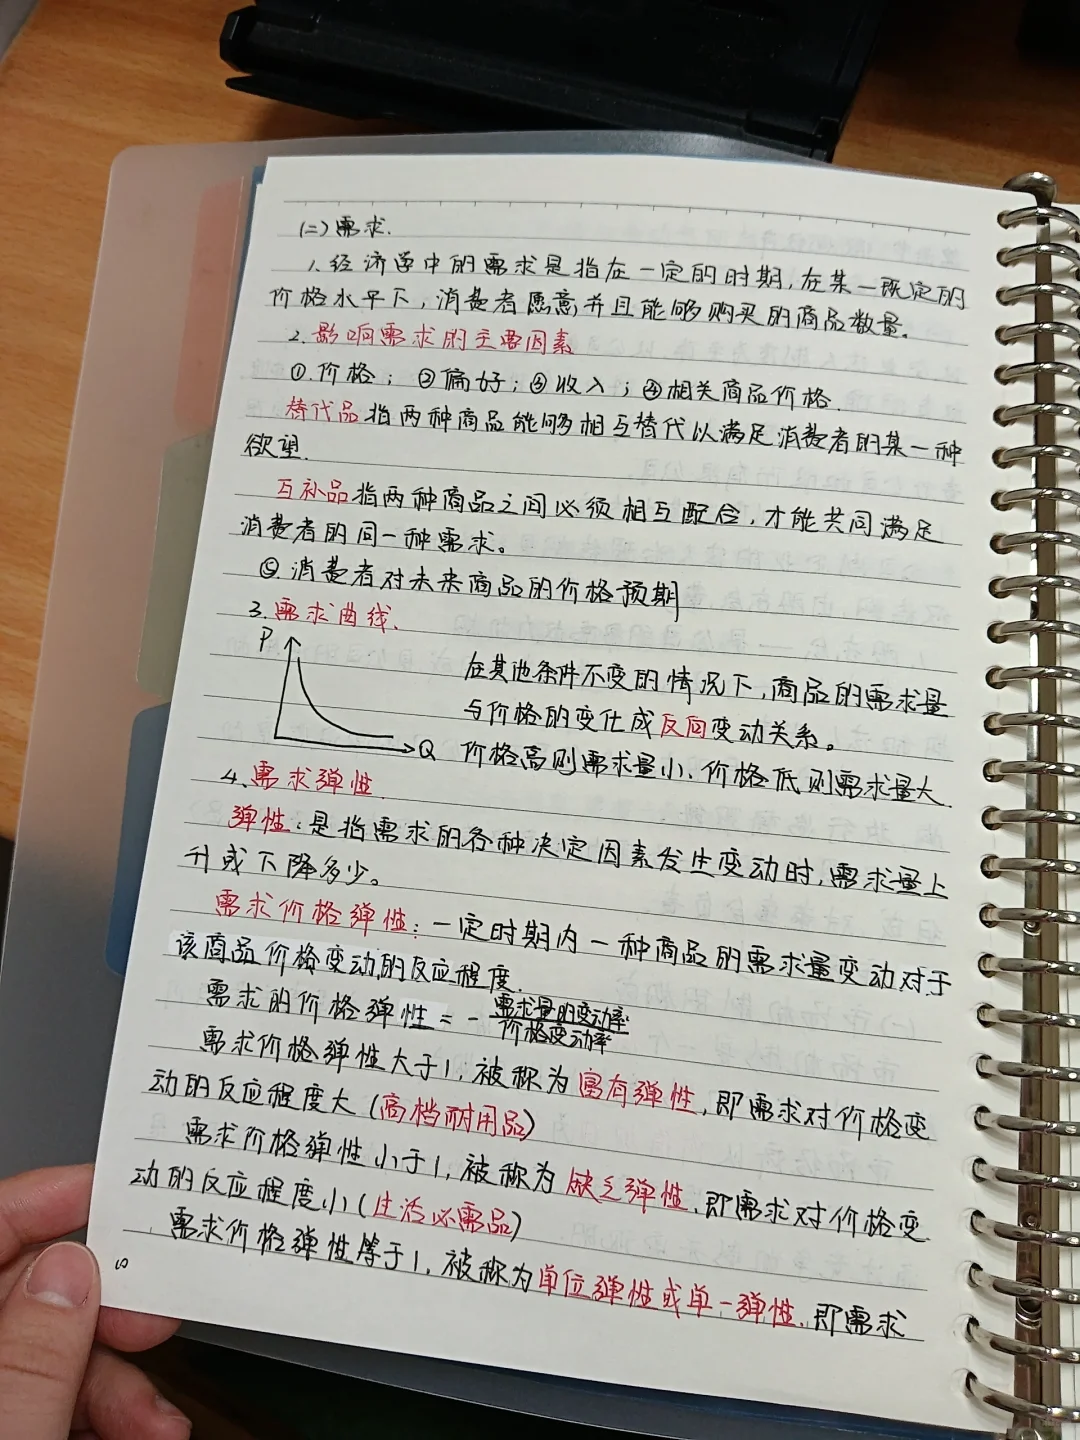 (二)需求.
1.经济学中的需求是指在一定的时期,在某一既定的
价格水平下,消费者愿意并且能够购买的商品数量。
2.影响需求的主要因素
①.价格;②偏好;③收入;④相关商品价格.
替代品指两种商品能够相互替代以满足消费者的某一种
欲望.
互补品指两种商品之间必须相互配合,才能共同满足
消费者的同一种需求。
⑤.消费者对未来商品的价格预期
3.需求曲线.
P
在其他条件不变的情况下,商品的需求量
与价格的变化成反向变动关系。
Q 价格高则需求量小、价格低则需求量大.
4.需求弹性.
弹性:是指需求的各种决定因素发生变动时,需求量上
升或下降多少。
需求价格弹性:一定时期内一种商品的需求量变动对于
该商品价格变动的反应程度.
需求的价格弹性=-需求量的变动率
价格变动率
需求价格弹性大于1,被称为富有弹性,即需求对价格变
动的反应程度大(高档耐用品)
需求价格弹性小于1,被称为缺乏弹性,即需求对价格变
动的反应程度小(生活必需品)
需求价格弹性等于1,被称为单位弹性或单一弹性,即需求